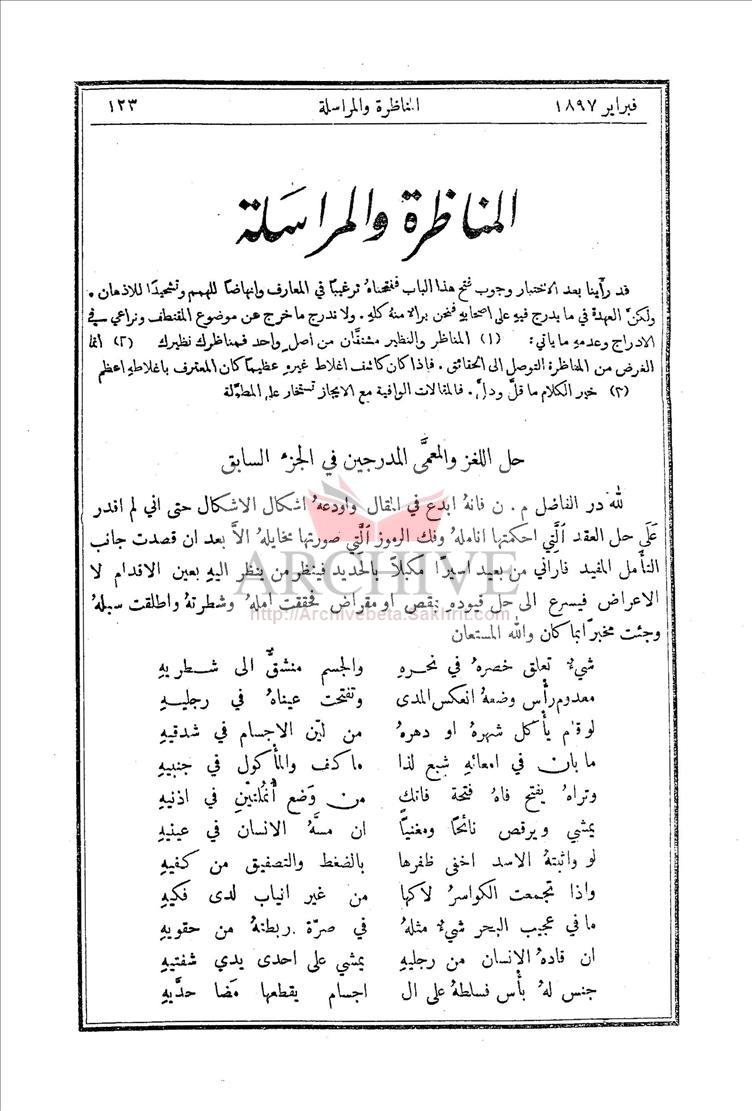 فبراير ١٨٩٧
المناظرة والمراسلة
١٢٣
المناظرة والمراسلة
قد رأينا بعد الاختبار وجوب فتح هذا الباب ففتحناهُ ترغيبًا في المعارف وانهاضًا للهمم وتشحيذًا للاذهان .
ولكنّ العهدة في ما يدرج فيهِ على اصحابهِ فنحن برالا منهُ كلهِ . ولا ندرج ما خرج عن موضوع المقتطف ونراعي في
الادراج وعدمهِ ما يأتي : (١) المناظر والنظير مشتقَّان من اصلٍ واحد فمناظرك نظيرك (٢) انما
الغرض من المناظرة التوصل الى الحقائق . فاذا كان كاشف اغلاط غيرهِ عظيمًا كان المعترف باغلاطهِ اعظم
(٣) خير الكلام ما قلَّ ودلَّ . فالمقالات الوافية مع الايجاز تستخار على المطوَّلة
حل اللغز والمعمَّى المدرجين في الجزء السابق
لله در الفاضل م . ن فانهُ ابدع في المقال واودعهُ اشكال الاشكال حتى اني لم اقدر
عَلَى حل العقد اَلَّتِي احكمتها اناملهُ وفك الرموز اَلَّتِي صورتها مخايلهُ الاَّ بعد ان قصدت جانب
التأمل المفيد فاراني من بعيد اسيرًا مكبلاً بالحديد فينظر من ينظر اليهِ بعين الاقدام لا
الاعراض فيسرع الى حل قيوده بمقص او مقراض فحققت امله وشطرتهُ واطلقت سبلهُ
وجئت مخبرًا بما كان والله المستعان
شيءٌ تعلق خصرهُ في نحرهِ والجسم منشقٌّ الى شطريهِ
معدوم رأس وضعهُ انعكس المدى وتفتحت عيناهُ في رجليهِ
لو قام يأكل شهرهُ او دهرهُ من ليّن الاجسام في شدقيهِ
ما بان في امعائهِ شبع لذا ما كف والمأكول في جنبيهِ
وتراهُ يفتح فاهُ فتحة فاتكٍ من وَضع أُنمُلتَينِ في اذنيهِ
يمشي ويرقص نائحًا ومغنيًا ان مسَّهُ الانسان في عينيهِ
لو واثبتهُ الاسد اخفى ظفرها بالضغط والتصفيق من كفيهِ
واذا تجمعت الكواسرُ لاكها من غير انياب لدى فكيهِ
ما في عجيب البحر شيءٌ مثلهُ في صرّة ربطتهُ من حقويهِ
ان قادهُ الإنسان من رجليهِ يمشي على احدى يدي شفتيهِ
جنس لهُ بأس فسلطهُ على ال اجسام يقطعها مَضا حدَّيهِ
ARCHIVE
http://Archivebeta.Sakhrit.com